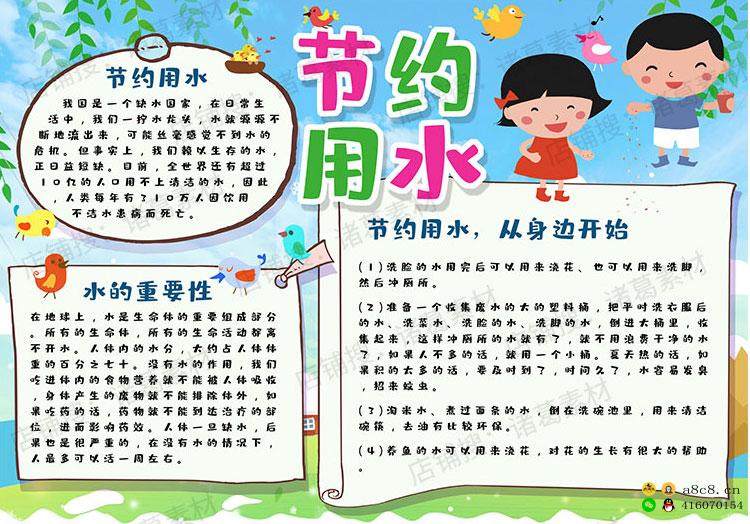 节约
用水
节约用水
我国是一个缺水国家，在日常生
活中，我们一拧水龙头，水就源源不
断地流出来，可能丝毫感觉不到水的
危机。但事实上，我们赖以生存的水，
正日益短缺。目前，全世界还有超过
10亿的人口用不上清洁的水，因此
，人类每年有310万人因饮用
不洁水患病而死亡。
水的重要性
在地球上，水是生命体的重要组成部分
。所有的生命体，所有的生命活动都离
不开水。人体内的水分，大约占人体体
重的百分之七十。没有水的作用，我们
吃进体内的食物营养就不能被人体吸收
，身体产生的废物就不能排除体外，如
果吃药的话，药物就不能到达治疗的部
位，进而影响药效。人体一旦缺水，后
果也是很严重的，在没有水的情况下，
人最多可以活一周左右。
节约用水，从身边开始
(1)洗脸的水用完后可以用来浇花、也可以用来洗脚，
然后冲厕所。
(2)准备一个收集废水的大的塑料桶，把平时洗衣服后
的水、洗菜水、洗脸的水、洗脚的水，倒进大桶里，收
集起来，这样冲厕所的水就有了，就不用浪费干净的水
了，如果人不多的话，就用一个小桶。夏天热的话，如
果积的太多的话，要及时到了，时间久了，水容易发臭
，招来蚊虫。
(3)淘米水、煮过面条的水，倒在洗碗池里，用来清洁
碗筷，去油有比较环保。
(4)养鱼的水可以用来浇花，对花的生长有很大的帮助
。
店铺搜：诸葛素材
a8c8.cn
416070154